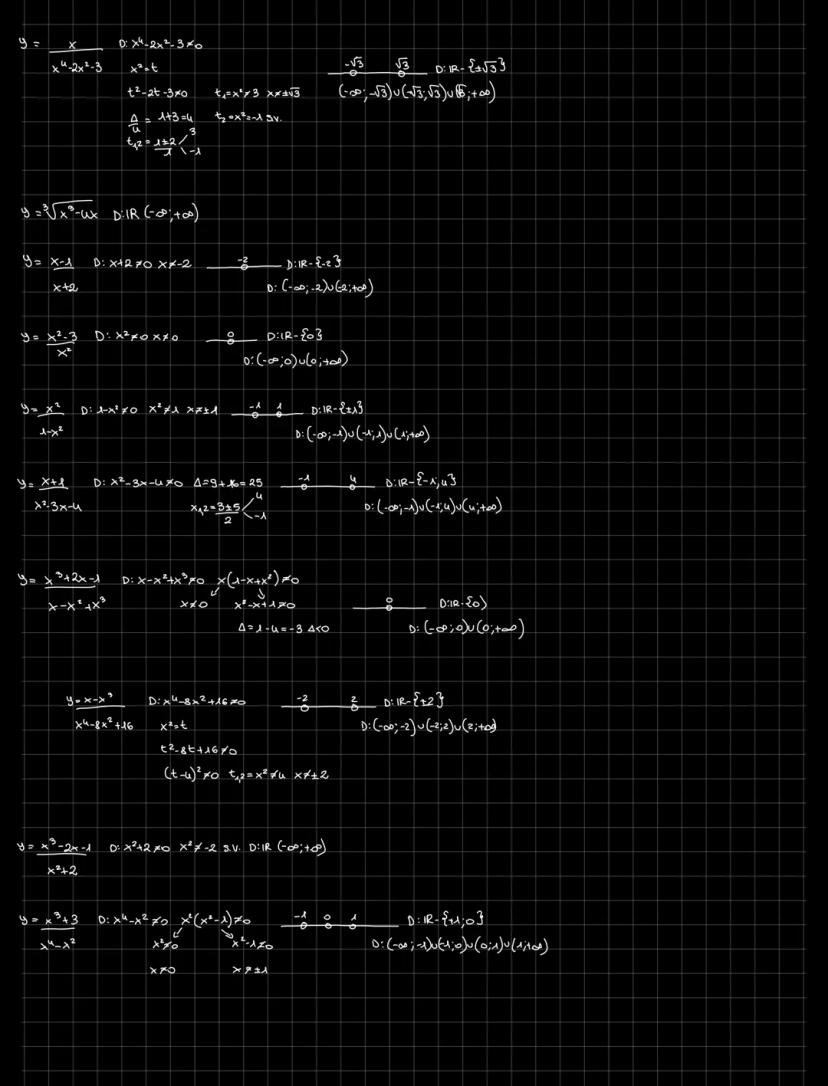 y = x/(x⁴-2x²-3) D: x⁴-2x²-3≠0
x²=t -√3 √3 D: IR-{±√3}
t²-2t-3≠0 t₁=x²≠3 x≠±√3 (-∞;-√3)∪(-√3;√3)∪(√3;+∞)
Δ/4 = 1+3=4 t₂=x²=-1 S.V.
t₁,₂ = (1±2)/1 3 -1
y = ³√(x³-4x) D: IR (-∞;+∞)
y = (x-1)/(x+2) D: x+2≠0 x≠-2 -2 D: IR-{-2}
D: (-∞;-2)∪(-2;+∞)
y = (x²-3)/x² D: x²≠0 x≠0 0 D: IR-{0}
D: (-∞;0)∪(0;+∞)
y = x²/(1-x²) D: 1-x²≠0 x²≠1 x≠±1 -1 1 D: IR-{±1}
D: (-∞;-1)∪(-1;1)∪(1;+∞)
y = (x+1)/(x²-3x-4) D: x²-3x-4≠0 Δ=9+16=25 -1 4 D: IR-{-1;4}
x₁,₂ = (3±5)/2 4 -1 D: (-∞;-1)∪(-1;4)∪(4;+∞)
y = (x³+2x-1)/(x-x²+x³) D: x-x²+x³≠0 x(1-x+x²)≠0
x≠0 x²-x+1≠0 0 D: IR-{0}
Δ=1-4=-3 Δ<0 D: (-∞;0)∪(0;+∞)
y = (x-x³)/(x⁴-8x²+16) D: x⁴-8x²+16≠0 -2 2 D: IR-{±2}
x²=t D: (-∞;-2)∪(-2;2)∪(2;+∞)
t²-8t+16≠0
(t-4)²≠0 t₁,₂=x²≠4 x≠±2
y = (x³-2x-1)/(x²+2) D: x²+2≠0 x²≠-2 S.V. D: IR (-∞;+∞)
y = (x³+3)/(x⁴-x²) D: x⁴-x²≠0 x²(x²-1)≠0 -1 0 1 D: IR-{±1;0}
x²≠0 x²-1≠0 D: (-∞;-1)∪(-1;0)∪(0;1)∪(1;+∞)
x≠0 x≠±1